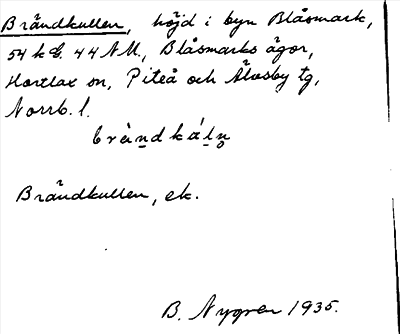 Brändkullen, höjd i byn Blåsmark,
54 k E. 44 N M., Blåsmarks ägor,
Hortlax sn, Piteå och Älvsby tg,
Norrb. l.
Brändkullen, ek.
B. Nygren 1935.